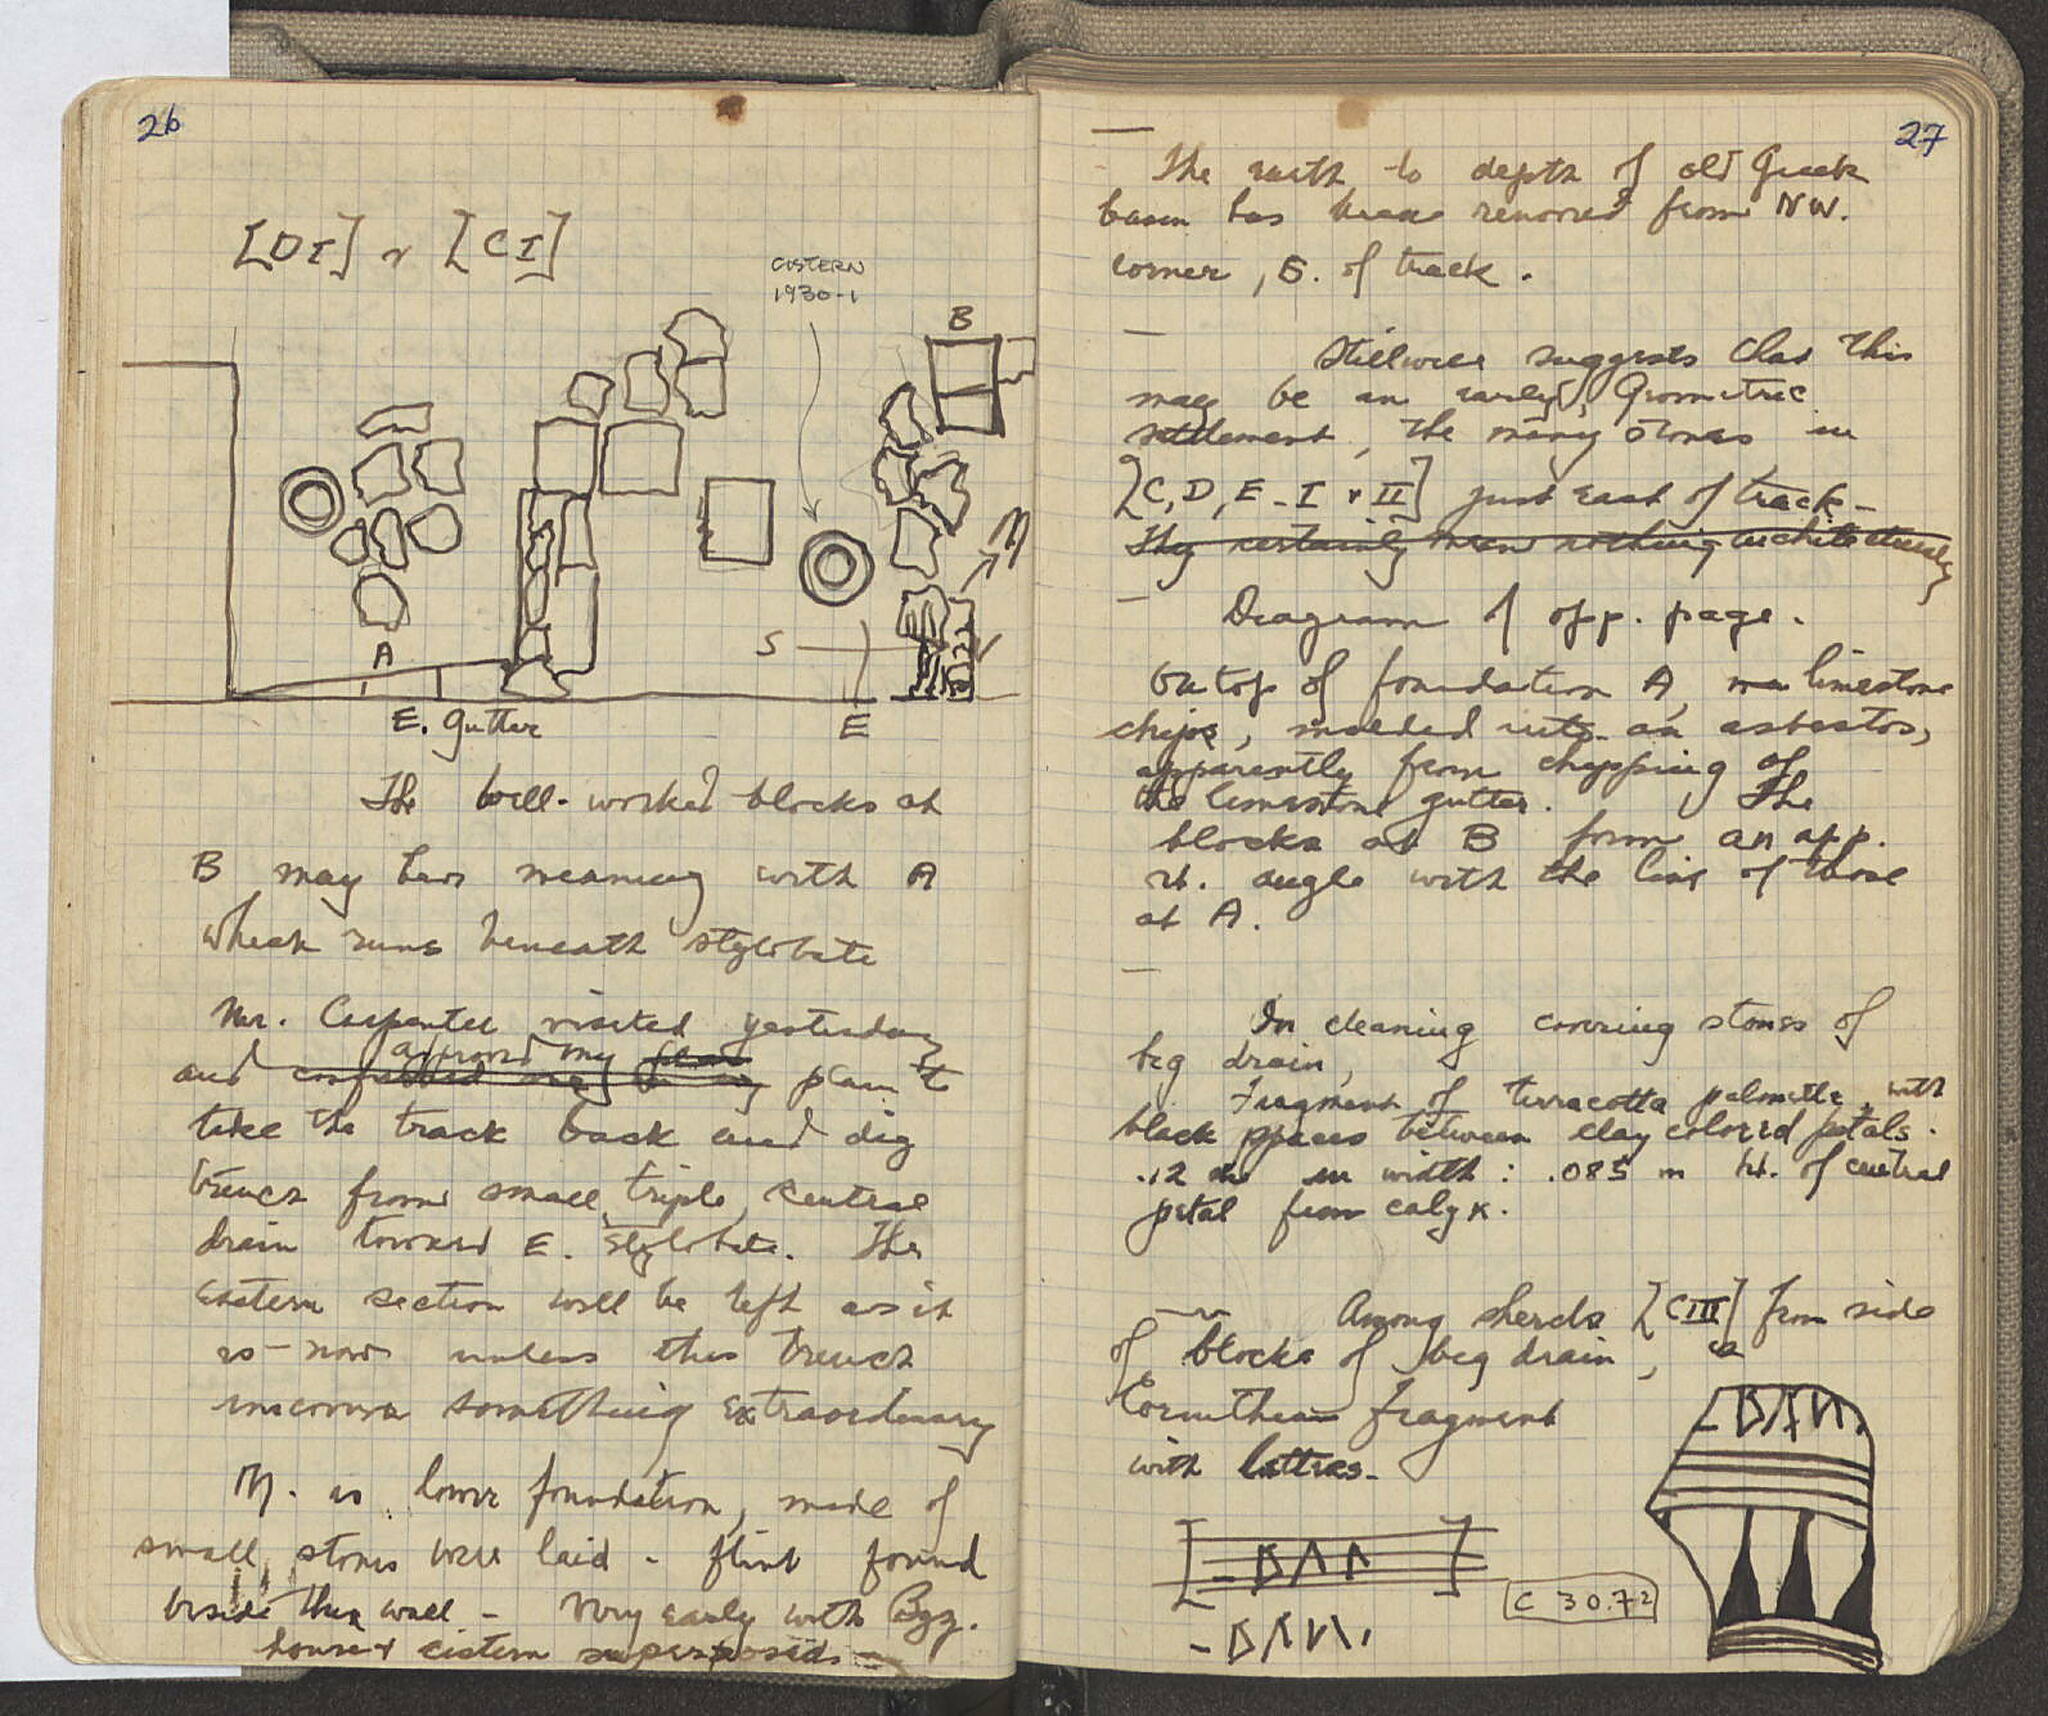 26
[DI] & [CI]
CISTERN
1930-1
B
N
S
A
E. Gutter
E
The well-worked blocks at
B may have meaning with A
which runs beneath stylobate
Mr. Carpenter visited yesterday
approved my plan
and my plan to
take the track back and dig
trench from small, triple, central
drain toward E. Stylobate. The
eastern section will be left as it
is now unless this trench
uncovers something extraordinary
N. is lower foundation, made of
small stones well laid - flint found
beside this wall - Very early with Byz.
house & cistern superposed -
27
The earth to depth of old Greek
has been removed from NW.
corner, E. of track.
Stillwell suggests that this
may be an early, Geometric
settlement, the many stones in
[C, D, E - I & II] just East of track -
They certainly mean nothing architecturally
Diagram of opp. page.
On top of foundation A, limestone
chips, molded into an asbestos,
apparently from chipping of
the limestone gutter. The
blocks at B form an app.
rt. angle with the line of those
at A.
In cleaning covering stones of
big drain,
Fragment of terracotta palmette, with
black spaces between clay colored petals.
.12 m in width : .085 m ht. of central
petal from calyx.
Among sherds [CIII] from side
of blocks of big drain, a
Corinthian fragment
with letters -
C 30.72